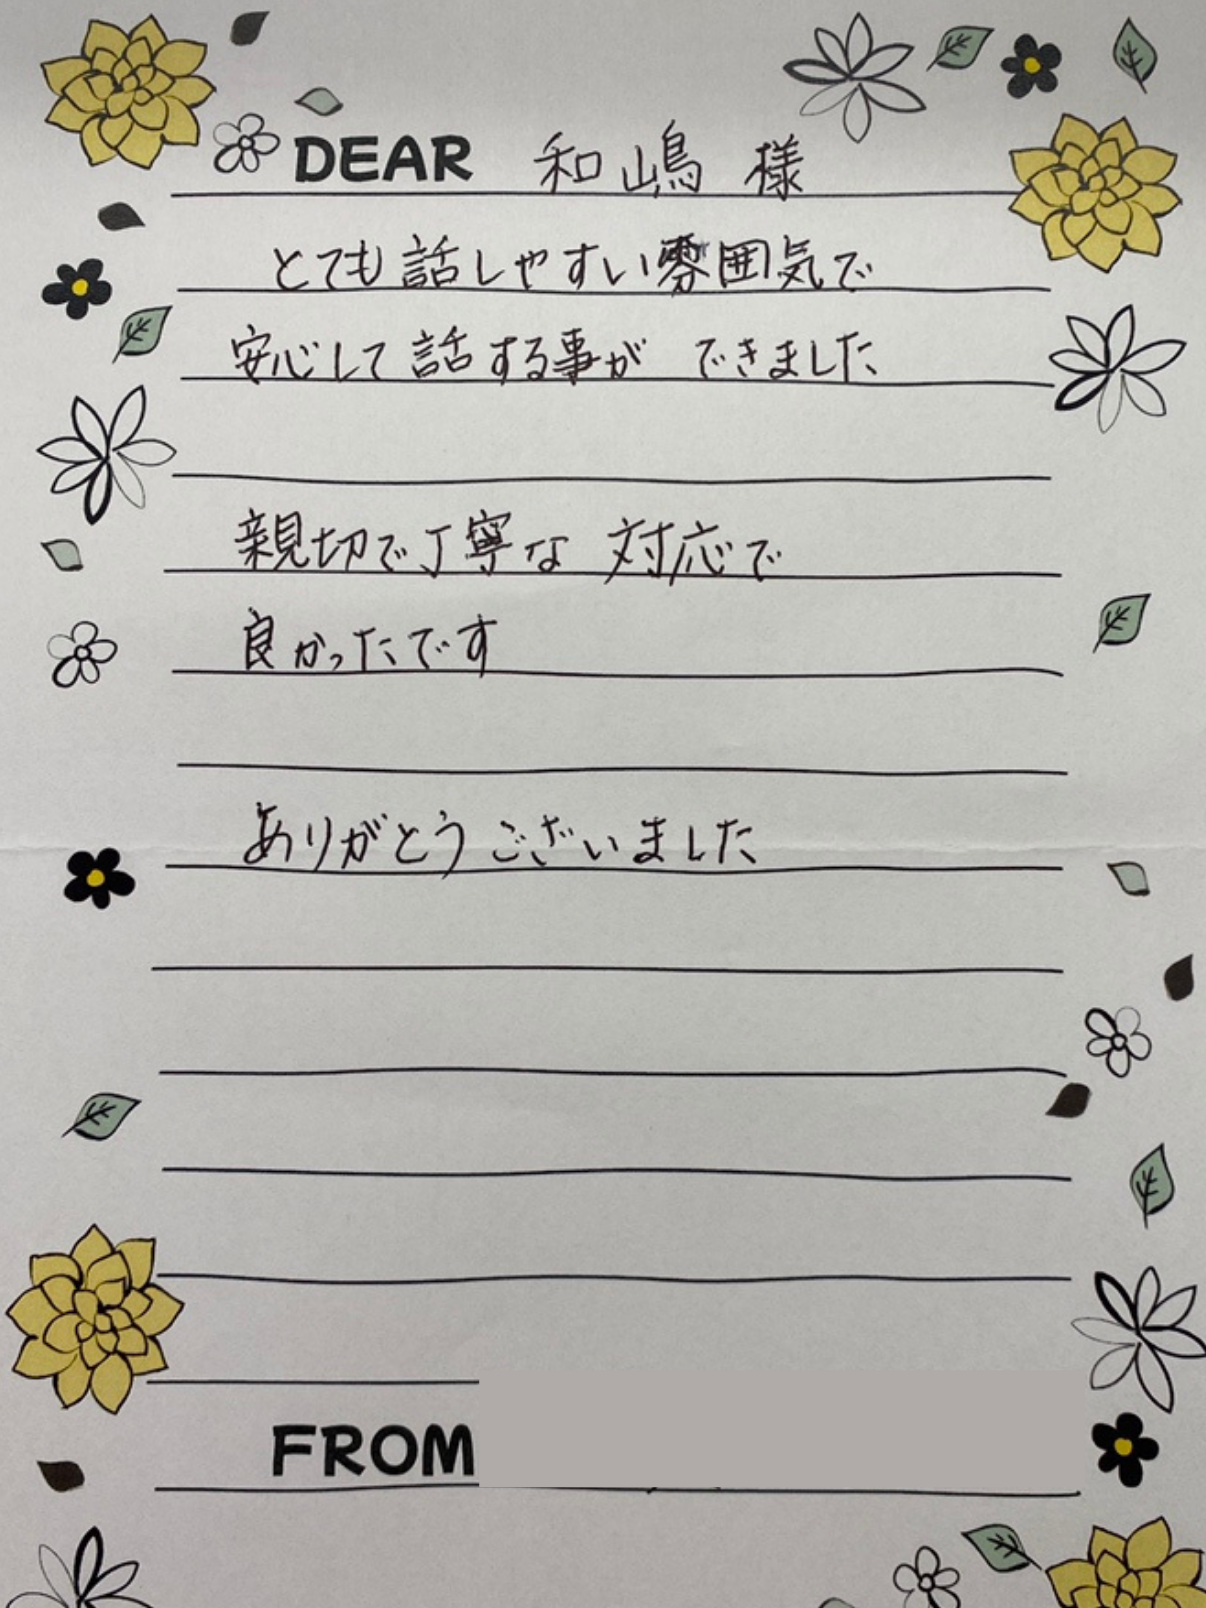 DEAR 和嶋 様
とても話しやすい雰囲気で
安心して話する事が できました
親切で丁寧な 対応で
良かったです
ありがとうございました
FROM